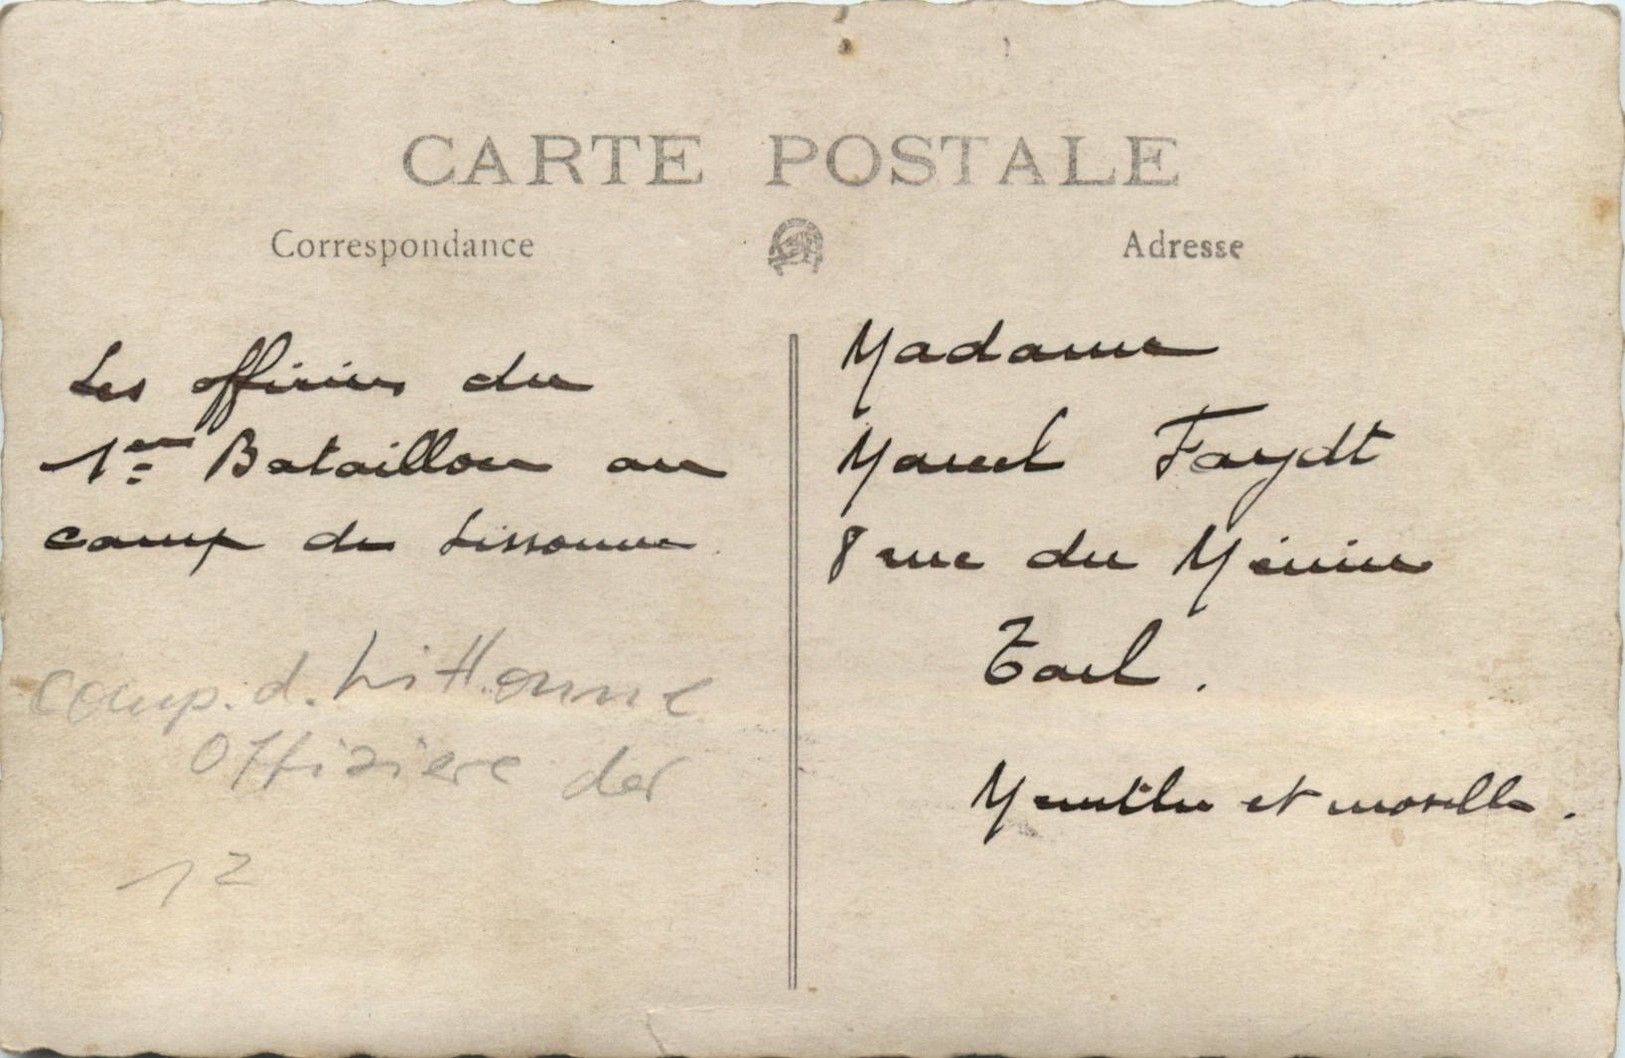 CARTE POSTALE
Correspondance
Adresse
Les officiers du
1er Bataillon au
camp de Sissonne
camp. d. Littonne
Offiziere der
12
Madame
Marcel Faydt
8 rue du Ménin
Toul.
Meurthe et moselle.